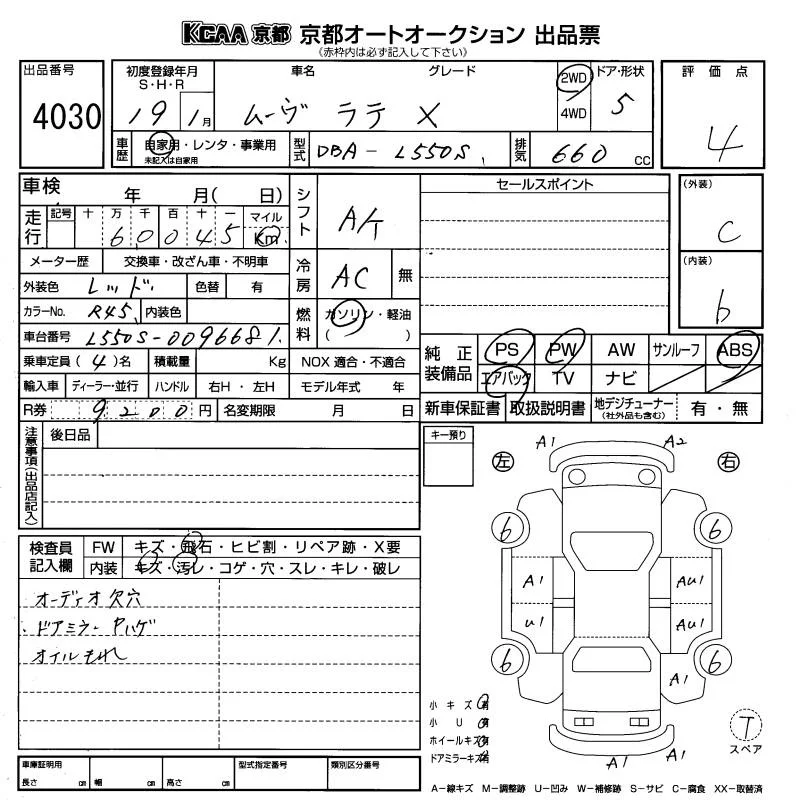 KCAA 京都 京都オートオークション 出品票
(赤枠内は必ず記入して下さい)
出品番号 4030
初度登録年月 S・H・R 19 1月
車名 グレード ムーヴ ラテ X
2WD 4WD
ドア・形状 5
評価点 4
車歴 自家用・レンタ・事業用 未記入は自家用
型式 DBA-L550S
排気 660 CC
車検 年 月( 日)
シフト A/T
セールスポイント
(外装) C
走行 記号 十 万 千 百 十 一 マイル
60045 Km
(内装) b
メーター歴 交換車・改ざん車・不明車
冷房 AC 無
外装色 レッド 色替 有
カラーNo. R45 内装色
燃料 ガソリン・軽油 ( )
車台番号 L550S-0096681
純正装備品 PS PW AW サンルーフ ABS
エアバック TV ナビ
乗車定員(4)名 積載量 Kg NOX適合・不適合
輸入車 ディーラー・並行 ハンドル 右H・左H モデル年式 年
R券 9200円 名変期限 月 日
新車保証書 取扱説明書 地デジチューナー (社外品も含む) 有・無
注意事項(出品店記入) 後日品
キー預り
A1 A2
左 右
6 6
検査員記入欄 FW キズ・飛石・ヒビ割・リペア跡・X要
内装 キズ・汚レ・コゲ・穴・スレ・キレ・破レ
オーディオ欠穴
・ドアミラー Pハゲ
オイルもれ
A1 AU1
U1 AU1
6 6
A1
小キズ 有
小U 有
ホイールキズ 有
ドアミラーキズ 有
T スペア
A1 A1
車庫証明用 長さ cm 幅 cm 高さ cm
型式指定番号 類別区分番号
A-線キズ M-調整跡 U-凹み W-補修跡 S-サビ C-腐食 XX-取替済